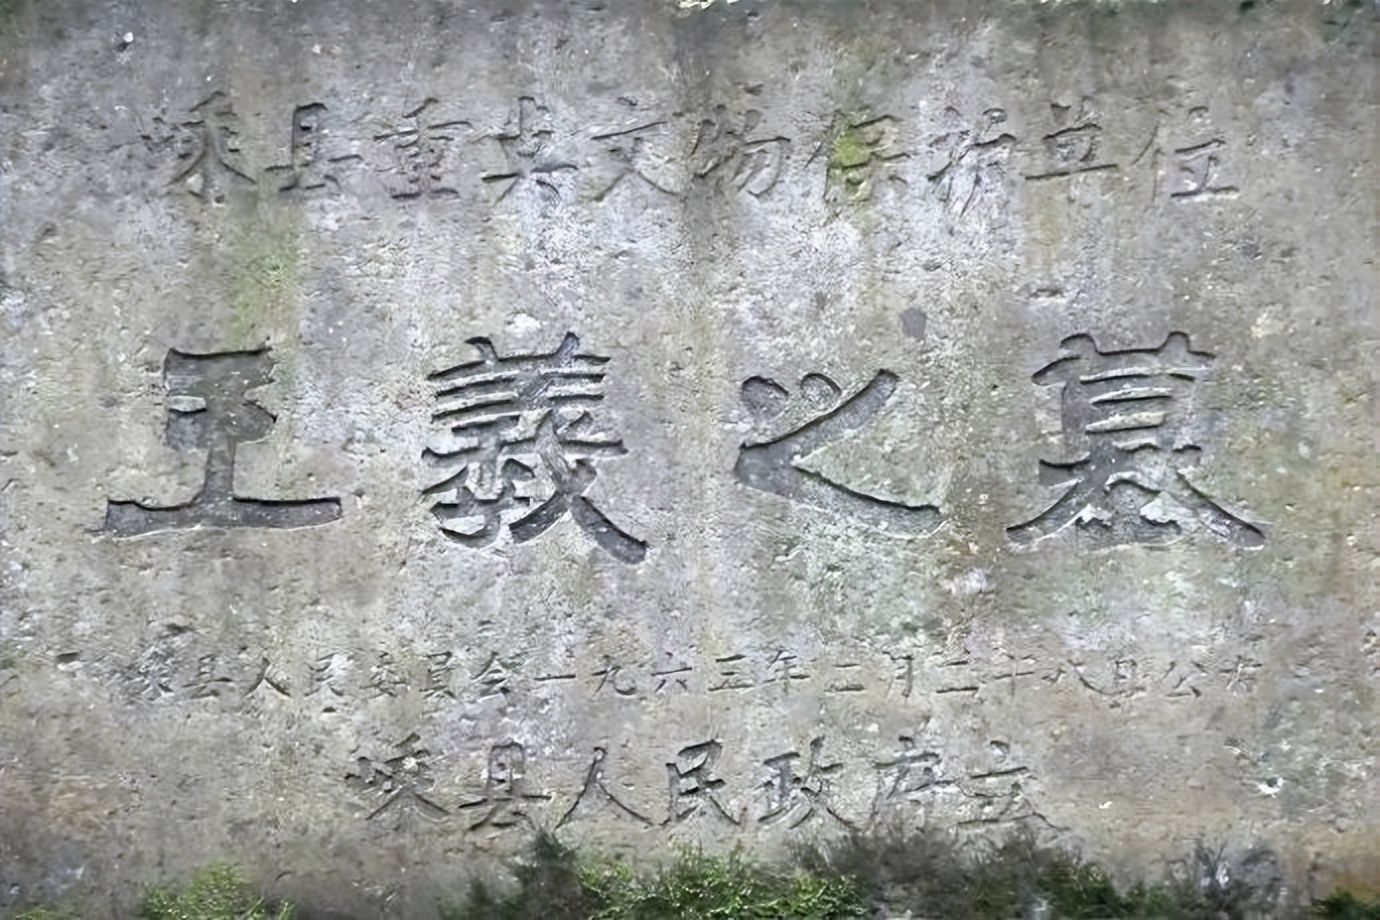 嵊县重点文物保护单位
王羲之墓
嵊县人民委员会一九六三年二月二十八日公布
嵊县人民政府立